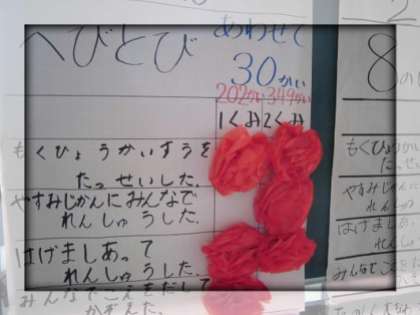 へびとび
あわせて
30かい
202かい 349かい
1くみ 2くみ
もくひょうかいすうを
たっせいした.
やすみじかんにみんなで
れんしゅうした.
はげましあって
れんしゅうした.
みんなでこえをだして
かぞえた.
8の
もくひょうかい
たっせ
やすみじかん
れんしゅ
はげましあ
れんし
みんなでこえを